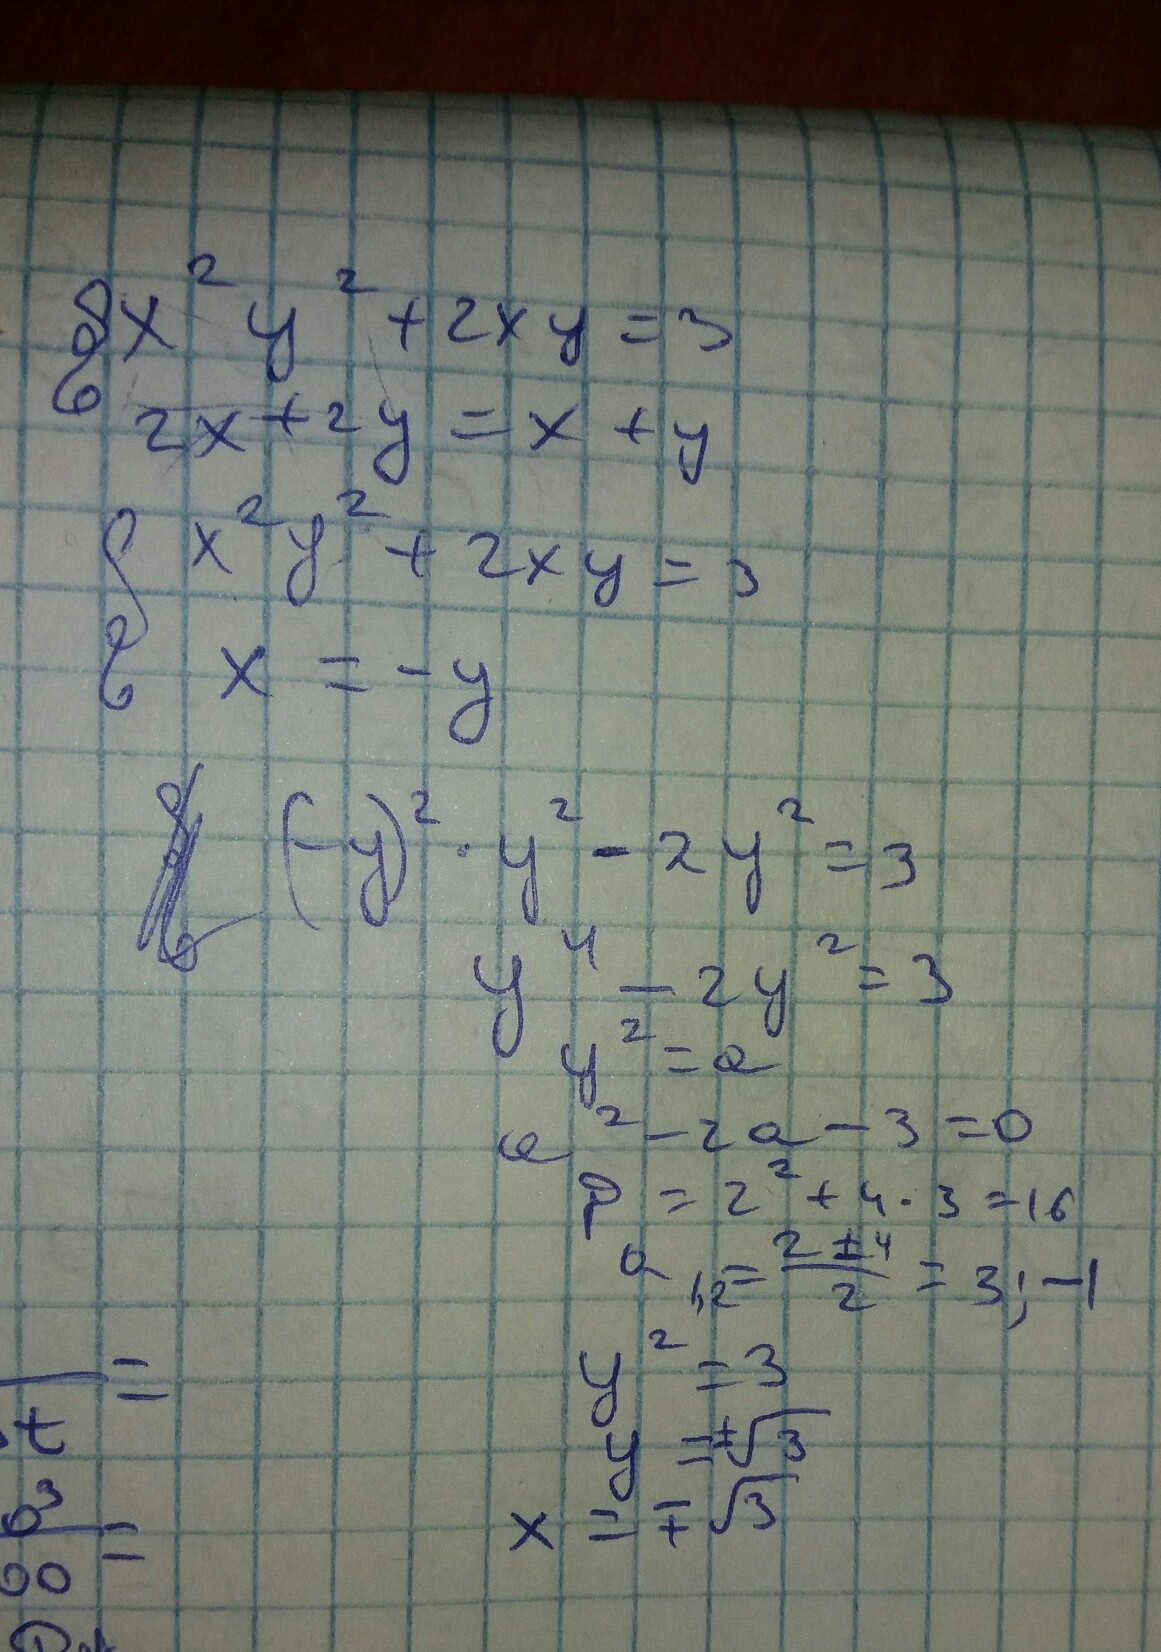 { x² y² + 2xy = 3
2x + 2y = x + y
{ x² y² + 2xy = 3
x = -y
(-y)² · y² - 2y² = 3
y⁴ - 2y² = 3
y² = a
a² - 2a - 3 = 0
D = 2² + 4 · 3 = 16
a₁,₂ = (2 ± 4)/2 = 3; -1
y² = 3
y = ±√3
x = ∓√3